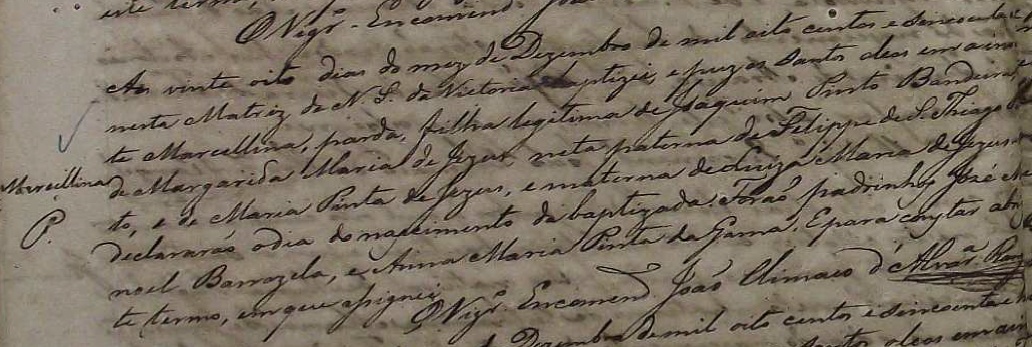 este termo,
O Vigr.º Encomend
Aos vinte oito dias do mez de Dezembro de mil oito centos e sincoenta e
nesta Matriz de N. S. da Victoria baptizei, e puz os Santos oleos em a ino
te Marcellina, parda, filha legitima de Joaquim Pinto Bandeira, e
Marcellina
de Margarida Maria de Jezus, neta paterna de Felippe de S. Thiago
P.
to, e de Maria Pinta de Jezus, e materna de Luiza Maria de Jezus
declararão o dia do nascimento da baptizada. Forão padrinhos José Ma
noel Barrozela, e Anna Maria Pinta da Gama. E para constar abri
te termo, em que assignei.
O Vigr.º Encomend João Climaco d'Alvar.ª Ran
Dezembro de mil oito centos e sincoenta e
Santos oleos em a in